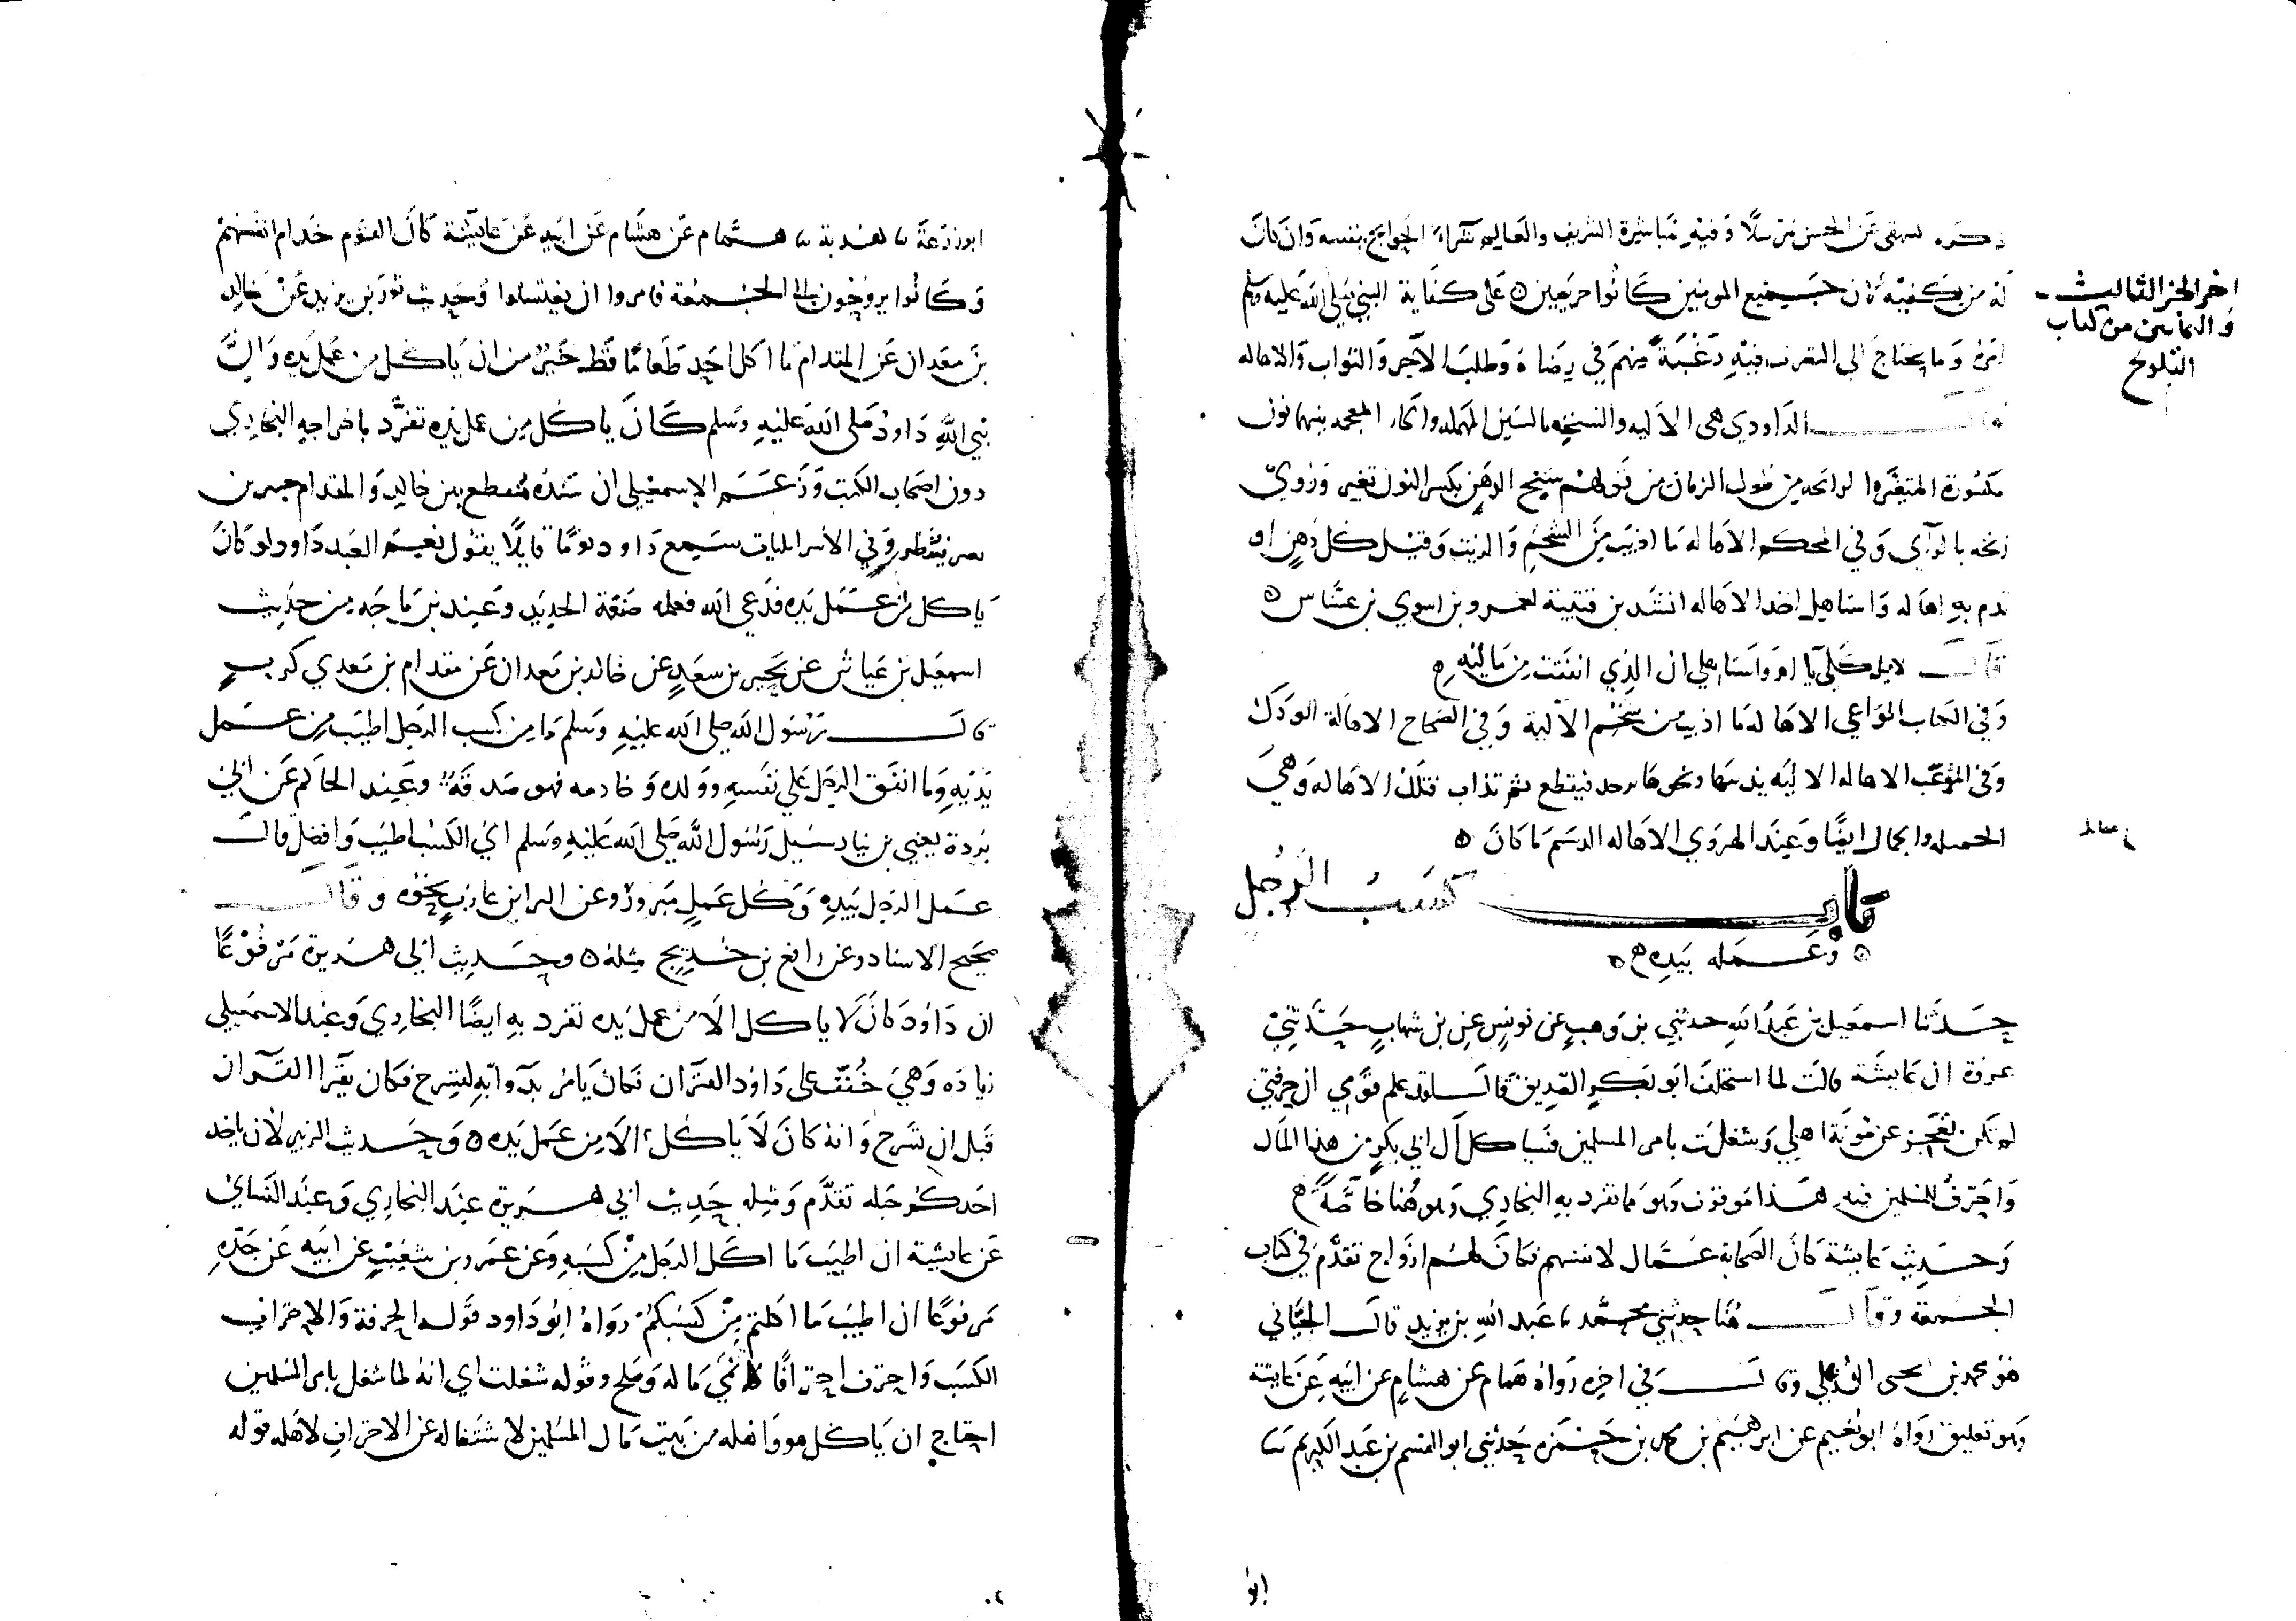 ذكره البيهقي عن الحسن مرسلا وفيه مباشرة الشريف والعالم شراء الحوايج بنفسه وان كان
له من يكفيه لان جميع المومنين كانوا حريصين على كفاية النبي صلى الله عليه وسلم
امره وما يحتاج الى التصرف فيه رغبة منهم في رضاه وطلب الاجر والثواب والاهاله
قال الداودي هي الاليه والسنخه بالسين المهمله والخاء المعجمه بينهما نون
مكسورة المتغيره الرائحه من طول الزمان من قولهم سنخ الدهن بكسر النون تغير وروي
زنخه بالزاي وفي المحكم الاهاله ما اذيب من الشحم والزيت وقيل كل دهن او
تدم به اهاله واستاهل اخذ الاهاله انشد بن قتيبة لعمرو بن اسوي بن عشاس
قال لا بل كلي يا ام واستاهلي ان الذي انفقت من ماليه
وفي الكتاب الواعي الاهاله ما اذيب من شحم الالية وفي الصحاح الاهالة الودك
وفي الموعب الاهاله الاليه ونحوها يوخد فيقطع ثم تذاب فتلك الاهاله وهي
الجميله والجمال ايضا وعند الهروي الاهاله الدسم ما كان
اخر الجز الثالث
والثمانين من كتاب
التلويح
باب كسب الرجل
وعمله بيده
حدثنا اسمعيل بن عبد الله حدثني بن وهب عن يونس عن بن شهاب حدثني
عروة ان عايشة قالت لما استخلف ابو بكر الصديق قال لقد علم قومي ان حرفتي
لم تكن تعجز عن مونة اهلي وشغلت بامر المسلمين فسياكل ال ابي بكر من هذا المال
واحترف للمسلمين فيه هذا موقوف وهو مما تفرد به البخاري وهو هنا خاصة
وحديث عايشة كان الصحابة عمال لانفسهم فكان لهم ارواح تقدم في كتاب
الجمعة وقال هنا حدثني محمد ثنا عبد الله بن يزيد قال الجياني
هو محمد بن يحيى الذهلي وقال في اخره رواه همام عن هشام عن ابيه عن عايشة
وهو تعليق رواه ابو نعيم عن ابرهيم بن محمد بن حمزه حدثني ابو القسم بن عبد الكريم ثنا
ابو
ابو زرعة ثنا هدبة ثنا همام عن هشام عن ابيه عن عايشة كان القوم خدام انفسهم
وكانوا يروحون الى الجمعة فامروا ان يغتسلوا وحديث ثور بن يزيد عن خالد
بن معدان عن المقدام ما اكل احد طعاما قط خير من ان ياكل من عمل يده وان
نبي الله داود صلى الله عليه وسلم كان ياكل من عمل يده تفرد باخراجه البخاري
دون اصحاب الكتب وزعم الاسمعيلي ان سنده منقطع بين خالد والمقدام جبير بن
نفير فينظر وفي الاسرايليات سمع داود يوما قايلا يقول نعم العبد داود لو كان
ياكل من عمل يده فدعى الله فعلمه صنعة الحديد وعند بن ماجه من حديث
اسمعيل بن عياش عن بحير بن سعد عن خالد بن معدان عن مقدام بن معدي كرب
قال رسول الله صلى الله عليه وسلم ما من كسب الرجل اطيب من عمل
يديه وما انفق الرجل على نفسه وولده وخادمه فهو صدقة وعند الحاكم عن ابي
بردة يعني بن نيار سيل رسول الله صلى الله عليه وسلم اي الكسب اطيب وافضل قال
عمل الرجل بيده وكل عمل مبرور وعن البرا بن عازب نحوه وقال
صحيح الاسناد وعن رافع بن خديج مثله وحديث ابي هريرة مرفوعا
ان داود كان لا ياكل الا من عمل يده تفرد به ايضا البخاري وعند الاسمعيلي
زياده وهي خففت على داود القران فكان يامر بدوابه لتسرج فكان يقرا القران
قبل ان تسرج وانه كان لا ياكل الا من عمل يده وحديث الزبير لان ياخد
احدكم حبله تقدم ومثله حديث ابي هريرة عند البخاري وعند النساي
عن عايشة ان اطيب ما اكل الرجل من كسبه وعن عمرو بن شعيب عن ابيه عن جده
مرفوعا ان اطيب ما اكلتم من كسبكم رواه ابو داود قوله الحرفة والاحتراف
الكسب واحترف احترافا نمي ماله وصلح وقوله شغلت اي انه لما شغل بامر المسلمين
احتاج ان ياكل هو واهله من بيت مال المسلمين لاشتغاله عن الاحتراف لاهله قوله